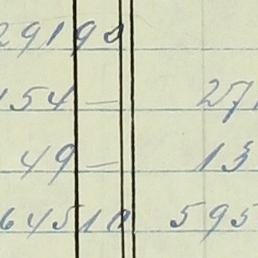 29190 
154 — 27
49 — 13
64510 595